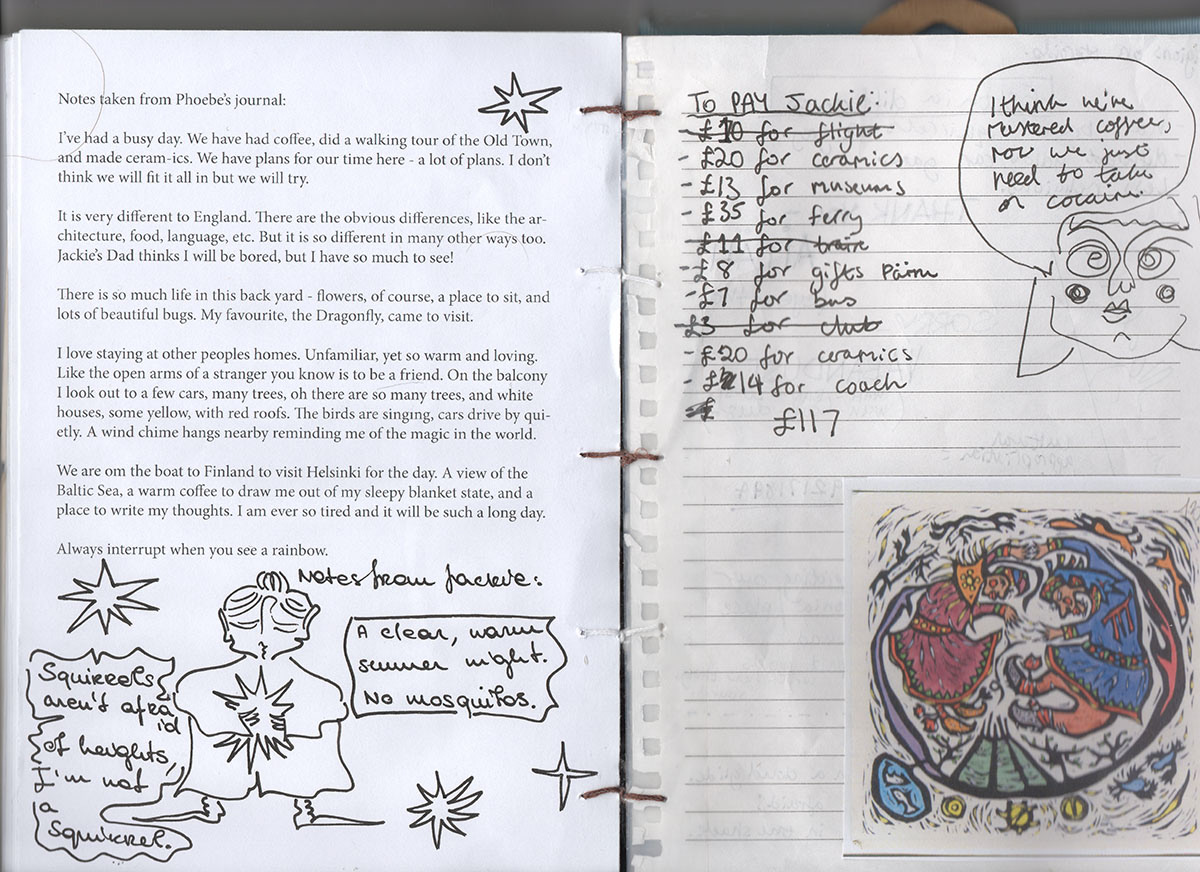 Notes taken from Phoebe's journal:
I've had a busy day. We have had coffee, did a walking tour of the Old Town,
and made ceram-ics. We have plans for our time here - a lot of plans. I don't
think we will fit it all in but we will try.
It is very different to England. There are the obvious differences, like the ar-
chitecture, food, language, etc. But it is so different in many other ways too.
Jackie's Dad thinks I will be bored, but I have so much to see!
There is so much life in this back yard - flowers, of course, a place to sit, and
lots of beautiful bugs. My favourite, the Dragonfly, came to visit.
I love staying at other peoples homes. Unfamiliar, yet so warm and loving.
Like the open arms of a stranger you know is to be a friend. On the balcony
I look out to a few cars, many trees, oh there are so many trees, and white
houses, some yellow, with red roofs. The birds are singing, cars drive by qui-
etly. A wind chime hangs nearby reminding me of the magic in the world.
We are om the boat to Finland to visit Helsinki for the day. A view of the
Baltic Sea, a warm coffee to draw me out of my sleepy blanket state, and a
place to write my thoughts. I am ever so tired and it will be such a long day.
Always interrupt when you see a rainbow.
Notes from Jackie:
A clear, warm
summer night.
No mosquitos.
Squirrels
aren't afra
id
of heights,
I'm not
a
squirrel.
TO PAY Jackie:
- £10 for flight
- £20 for ceramics
- £13 for museums
- £35 for ferry
£11 for train
- £8 for gifts Pärnu
- £7 for bus
£3 for club
- £20 for ceramics
- £14 for coach
£
£117
I think we've
mastered coffee,
now we just
need to take
on cocaine.